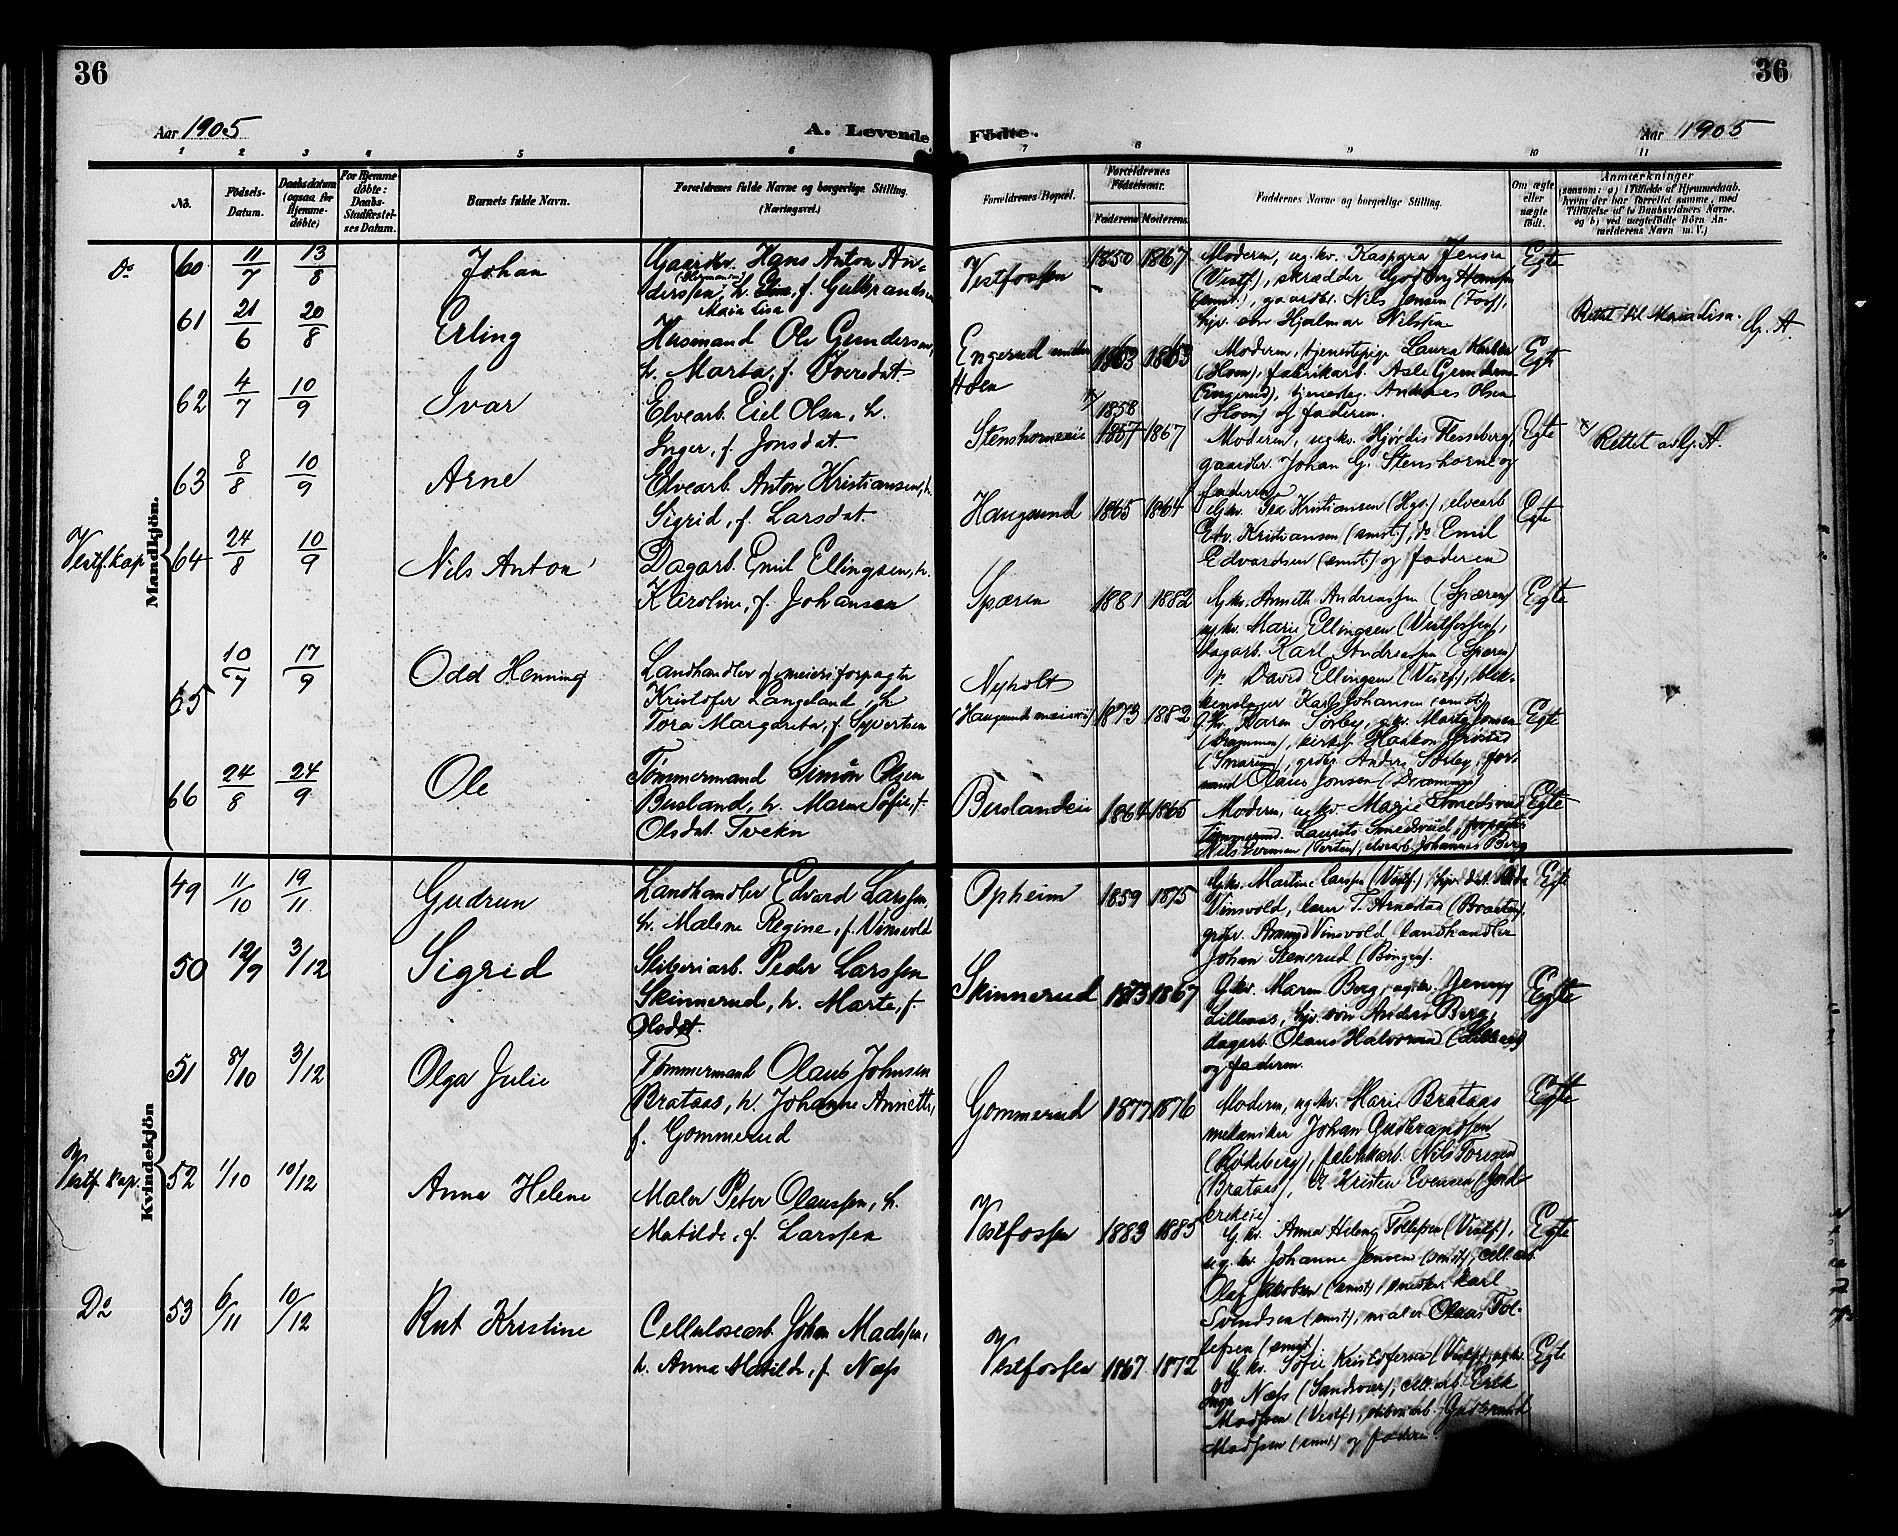 36
36
Aar 1905
A. Levende Födte.
Aar 1905
1 2 3 4 5 6 7 8 9 10 11
No.
Födsels-
Datum.
Daabsdatum
(ogsaa for
Hjemme-
döbte)
For Hjemme
döbte:
Daabs-
Stadfæstel-
ses Datum.
Barnets fulde Navn.
Forældrenes fulde Navne og borgerlige Stilling.
(Næringsvei.)
Forældrenes Bopæl.
Forældrenes
Födselsaar.
Faderens
Moderens
Faddernes Navne og borgerlige Stilling.
Om ægte
eller
uægte
født.
Anmærkninger
(saasom: a) i Tilfælde af Hjemmedaab,
hvem der har forrettet samme, med
Tilføielse af to Daabsvidners Navne,
og b) ved uægtefødte Börn An-
melderens Navn m. V.)
Mandkjön.
Do
60 11/7 13/8 Johan
Gaardbr. Hans Anton An-
derssen, h. f. Gulbrandsen
Maria Lisa
Vestfossen 1850 1867
Moderen, ug.kv. Kaspara Jensen
(Vestf.), skrædder Godtorg Hanssen
(smst.), gaardbr. Nils Jensen (Foss),
hjv. søn Hjalmar Nilssen
Egte
Rettet til Maria Lisa. G. A
61 21/6 20/8 Erling
Husmand Ole Gundersen,
h. Marta, f. Iversdat.
Engerud under
Hoen
1863 1863
Moderen, tjenestepige Laura
(Hoen), fabrikarb. Asle Gundersen
(Engerud), tjenesteg. Andreas Olsen
(Hoen) og faderen.
Egte
62 4/7 10/9 Ivar
Elvearb. Eiel Olsen, h.
Inger, f. Jonsdat.
Stenshorneeie 1858 1857 1867
Moderen, ug.kv. Hjørdis Flesseberg,
gaardbr. Johan G. Stenshorne og
faderen
Egte
Rettet av G. A.
63 8/8 10/9 Arne
Elvearb. Anton Kristiansen, h.
Sigrid, f. Larsdat.
Haugsund 1865 1864
Gkv. Tea Kristiansen (Hgs.), elvearb.
Edv. Kristiansen (smst.), do Emil
Edvardsen (smst) og faderen
Egte
Vestf. kap
64 24/8 10/9 Nils Anton
Dagarb. Emil Ellingsen, h.
Karoline, f. Johansen
Spæren 1881 1882
Gkv. Anneth Andreassen (Spæren)
ug.kv. Marie Ellingsen (Vestfossen),
dagarb. Karl Andreassen (Spæren)
David Ellingsen (Vestf.), blik-
kenslager Karl Johansen (smst)
Egte
65 10/7 17/9 Odd Henning
Landhandler og meieriforpagter
Kristofer Langeland, h
Tora Margareta, f. Syvertsen
Nyholt
(Haugsunds meieri) 1873 1882
Gkv. Karen Sørby, ugkv. Marta Jonsen
(Drammen), kirkes. Haakon
grdbr. Anders Sørby, for-
mand Olaus Jonsen (Drammen)
Egte
66 24/8 24/9 Ole
Tømmermand Simon Olsen
Busland, h. Maren Sofie, f.
Olsdat. Tvekn
Buslandeie 1864 1865
Moderen, ugkv. Magie Smedsrud
Tømmermd. Laurits Smedsrud, forpagter
Nils Evensen (Verten), elvearb. Johannes Berg
Egte
Kvindekjön
49 11/10 19/11. Gudrun
Landhandler Edvard Larssen,
h. Malene Regine, f. Vinsvold
Opheim 1859 1875
Gkv. Martine Larssen (Vestf.), hjv. dat. Alida
Vinsvold, lærer T. Arnestad (Braaten),
grdbr. Amund Vinsvold landhandler
Johan Stenerud (Bingen).
Egte
50 12/9 3/12 Sigrid
Sliberiarb. Peder Larssen
Skinnerud, h. Marte, f.
Olsdat.
Skinnerud 1873 1867
Gkv. Maren Berg, ugkv. Jenny
Lillemas, hjv. søn Anders Berg,
dagarb. Olaus Halvorsen
og faderen.
Egte
51 8/10 3/12 Olga Julie
Tømmermand Olaus Johnsen
Brataas, h. Johanne Annette,
f. Gommerud
Gommerud 1877 1876
Moderen, ugkv. Marie Brataas
mekaniker Johan Gudbrandssen
(Rødeberg), fabrikarb. Nils Toresen
(Brataas), do Kristen Evensen
Egte
Vestf kap.
52 1/10 10/12 Anna Helene
Maler Peter Olaussen, h.
Matilde, f. Larssen
Vestfossen 1883 1885
Gkv. Anna Helene Tollefsen (Vestf.),
ug.kv. Johanne Jensen (smst), cell.arb.
Olaf Jakobsen (smst) snedker Karl
Svendsen (smst), maler Olaus Tol-
lefsen (smst)
Egte
Do
53 6/11 10/12 Rut Kristine
Cellulosearb. Johan Madssen,
h. Anna Matilde, f. Næss
Vestfossen 1867 1872
Gkv. Sofie Kristofersen (Vestf.), ug.kv.
Inga Næss (Sandsvær), cell.arb. Erik
Madssen (Vestf), sliberiarb. Gudbrand
Madssen (smst) og faderen.
Egte